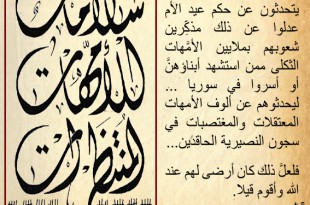 سلامات
للأمهات
المنتظرات
يتحدثون عن حكم عيد الأم
عدلوا عن ذلك مذكّرين
شعوبهم بملايين الأمّهات
الثكلى ممن استشهد أبناؤهنّ
أو أسروا في سوريا ...
ليحدثوهم عن ألوف الأمهات
المعتقلات والمغتصبات في
سجون النصيرية الحاقدين...
فلعلّ ذلك كان أرضى لهم عند
الله وأقوم قيلا.